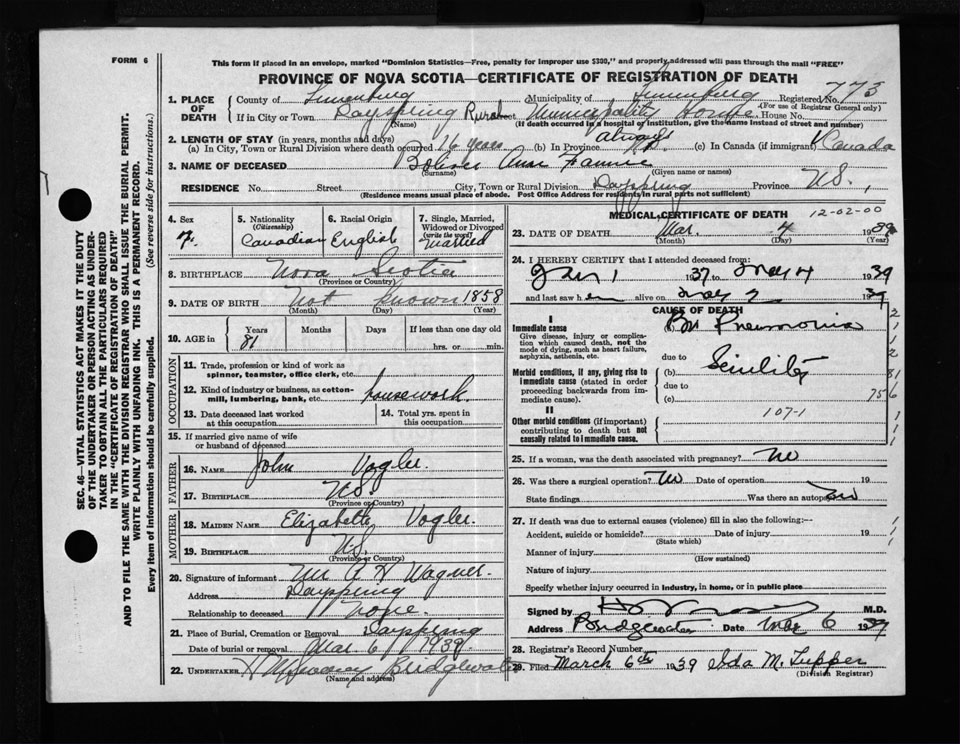 FORM 6
This form if placed in an envelope, marked "Dominion Statistics—Free, penalty for improper use $300," and properly addressed will pass through the mail "FREE"
PROVINCE OF NOVA SCOTIA—CERTIFICATE OF REGISTRATION OF DEATH
1. PLACE OF DEATH County of Lunenburg Municipality of Lunenburg Registered No. 773
(For use of Registrar General only)
If in City or Town Dayspring Rural Street Municipality House House No.
(Name) (If death occurred in a hospital of institution, give the name instead of street and number)
2. LENGTH OF STAY (in years, months and days)
(a) In City, Town or Rural Division where death occurred 16 years (b) In Province always (c) In Canada (if immigrant) Canada
3. NAME OF DECEASED Bolivar Anne Fannie
(Surname) (Given name or names)
RESIDENCE No. Street City, Town or Rural Division Dayspring Province N.S.
(Residence means usual place of abode. Post Office Address for residents in rural parts not sufficient)
4. Sex F.
5. Nationality (Citizenship) Canadian
6. Racial Origin English
7. Single, Married, Widowed or Divorced (write the word) Married
8. BIRTHPLACE Nova Scotia
(Province or Country)
9. DATE OF BIRTH Not known 1858
(Month) (Day) (Year)
10. AGE in Years 81 Months Days If less than one day old hrs. or min.
OCCUPATION
11. Trade, profession or kind of work as spinner, teamster, office clerk, etc.
12. Kind of industry or business, as cotton-mill, lumbering, bank, etc. housework.
13. Date deceased last worked at this occupation
14. Total yrs. spent in this occupation
15. If married give name of wife or husband of deceased
FATHER
16. NAME John Vogler.
17. BIRTHPLACE N.S.
(Province or Country)
MOTHER
18. MAIDEN NAME Elizabeth Vogler.
19. BIRTHPLACE N.S.
(Province or Country)
20. Signature of informant Mr. A H Wagner.
Address Dayspring
Relationship to deceased None.
21. Place of Burial, Cremation or Removal Dayspring
Date of burial or removal Mar. 6 1939.
22. UNDERTAKER Bridgewater
(Name and address)
MEDICAL CERTIFICATE OF DEATH 12-02-00
23. DATE OF DEATH Mar. 4 1939
(Month) (Day) (Year)
24. I HEREBY CERTIFY that I attended deceased from:
Jan 1 1937 to May 4 1939
and last saw her alive on 1939
CAUSE OF DEATH
I
Immediate cause
Give disease, injury or complication which caused death, not the mode of dying, such as heart failure, asphyxia, asthenia, etc.
Br. Pneumonia
due to
Morbid conditions, if any, giving rise to immediate cause (stated in order proceeding backwards from immediate cause).
(b) Senility
due to
(c)
II
Other morbid conditions (if important) contributing to death but not causally related to immediate cause.
107-1
25. If a woman, was the death associated with pregnancy? No
26. Was there a surgical operation? No Date of operation 19
State findings Was there an autopsy? No
27. If death was due to external causes (violence) fill in also the following:—
Accident, suicide or homicide? Date of injury 19
(State which)
Manner of injury
(How sustained)
Nature of injury
Specify whether injury occurred in industry, in home, or in public place
Signed by M.D.
Address Bridgewater Date Mar 6 1939
28. Registrar's Record Number
29. Filed March 6th 1939 Ida M. Tupper
(Division Registrar)
SEC. 46—VITAL STATISTICS ACT MAKES IT THE DUTY
OF THE UNDERTAKER OR PERSON ACTING AS UNDER-
TAKER TO OBTAIN ALL THE PARTICULARS REQUIRED
IN THE "CERTIFICATE OF REGISTRATION OF DEATH"
AND TO FILE THE SAME WITH THE DIVISION REGISTRAR WHO SHALL ISSUE THE BURIAL PERMIT.
WRITE PLAINLY WITH UNFADING INK. THIS IS A PERMANENT RECORD.
Every item of Information should be carefully supplied. (See reverse side for instructions.)